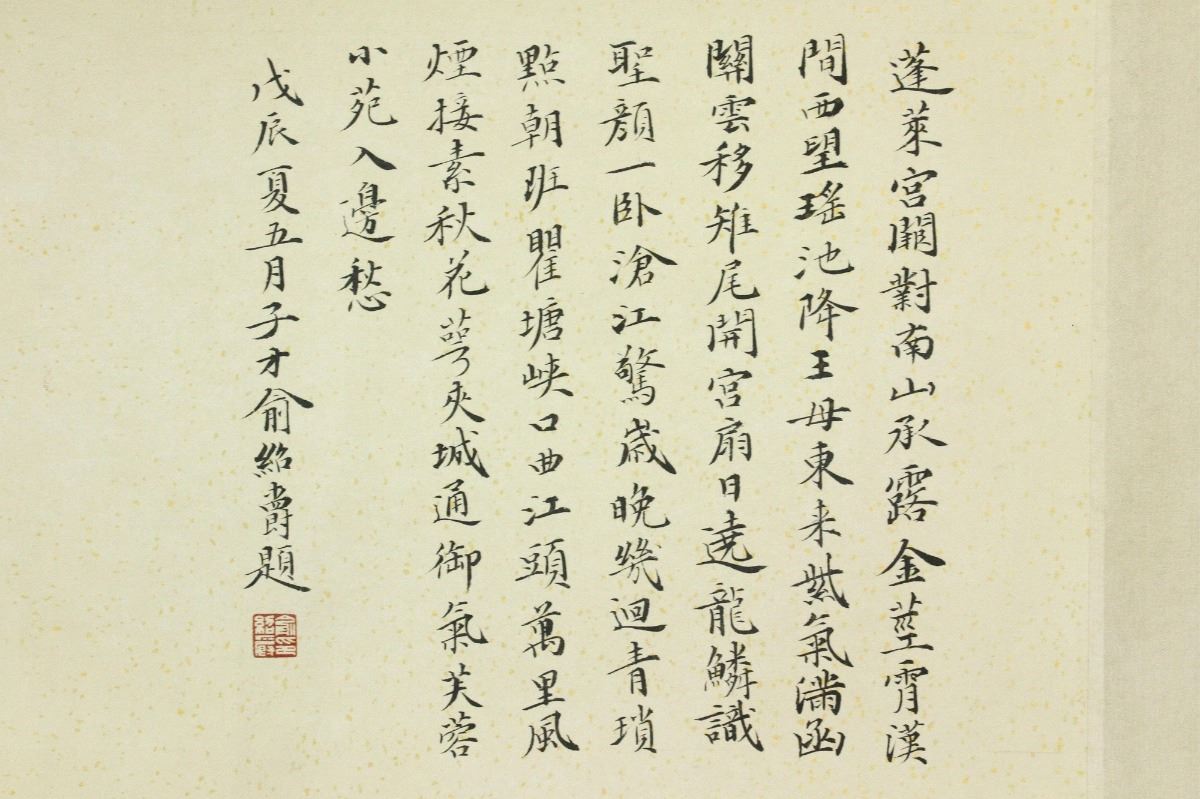 蓬萊宮闕對南山承露金莖霄漢
間西望瑤池降王母東来紫氣滿函
關雲移雉尾開宮扇日遶龍鱗識
聖顏一卧滄江驚歲晚幾迴青瑣
點朝班瞿塘峽口曲江頭萬里風
煙接素秋花萼夾城通御氣芙蓉
小苑入邊愁
戊辰夏五月子才俞紹爵題
俞紹爵印